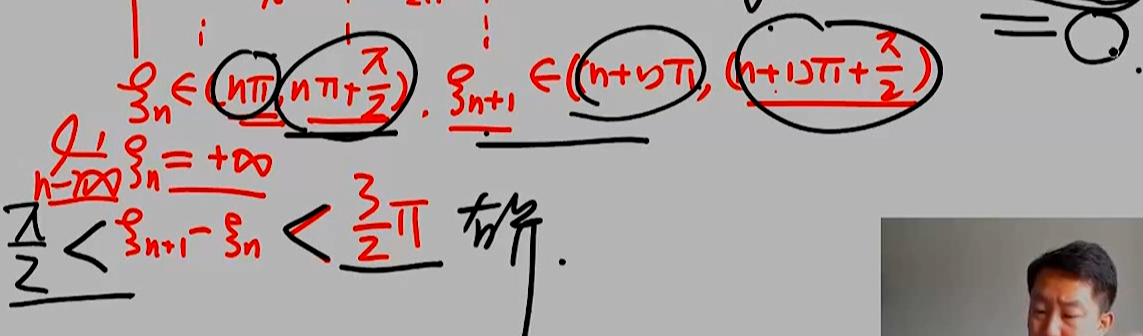 ξₙ ∈ (nπ, nπ+π/2). ξₙ₊₁ ∈ ((n+1)π, (n+1)π+π/2)
lim n→∞ ξₙ = +∞
π/2 < ξₙ₊₁ - ξₙ < 3/2 π 有界.